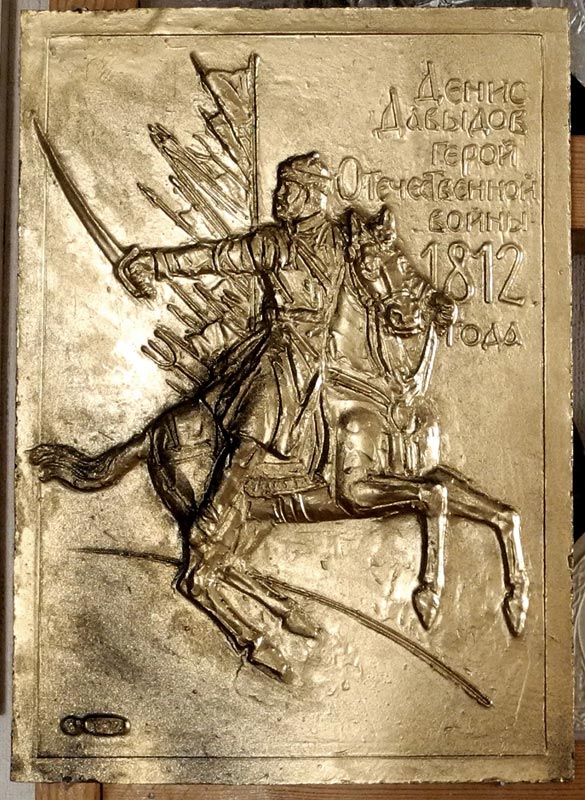 Денис
Давыдов
герой
Отечественной
войны
1812.
года